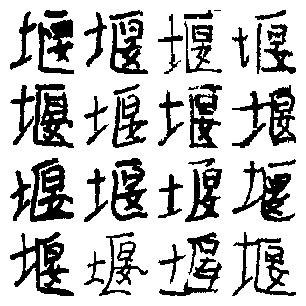 堰堰堰堰
堰堰堰堰
堰堰堰堰
堰堰堰堰